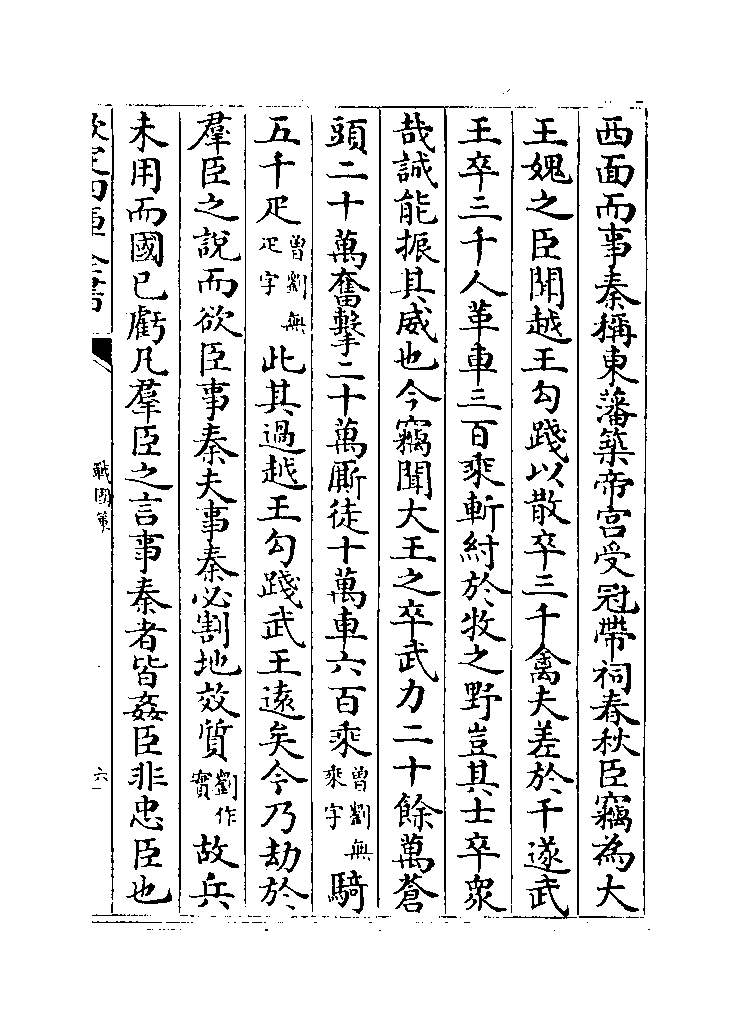 西面而事秦稱東藩築帝宫受冠帶祠春秋臣竊為大
王媿之臣聞越王勾踐以散卒三千禽夫差於干遂武
王卒三千人革車三百乘斬紂於牧之野豈其士卒衆
哉誠能振其威也今竊聞大王之卒武力二十餘萬蒼
頭二十萬奮擊二十萬厮徒十萬車六百乘曾劉無乘字騎
五千疋曾劉無疋字此其過越王勾踐武王逺矣今乃劫於
羣臣之說而欲臣事秦夫事秦必割地效質劉作實故兵
未用而國已虧凡羣臣之言事秦者皆姦臣非忠臣也
欽定四庫全書
戰國策
六